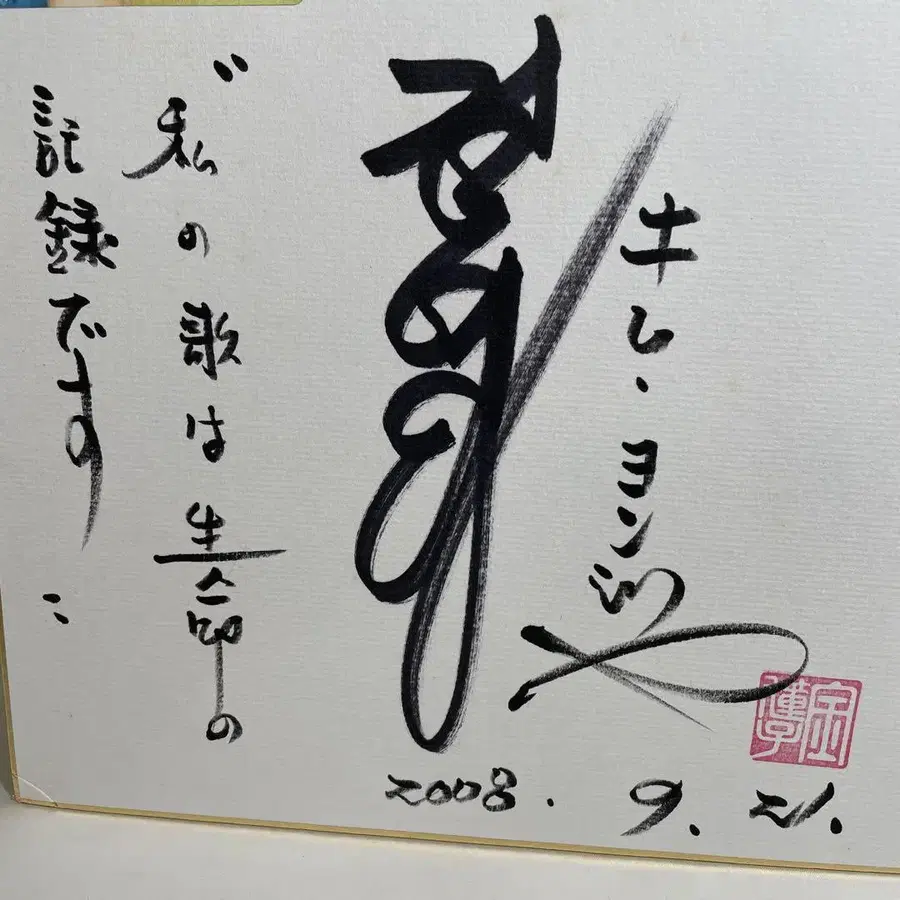 キム・ヨンジャ
“私の歌は生命の
記録です”
2008. 9. 21.
金蓮子